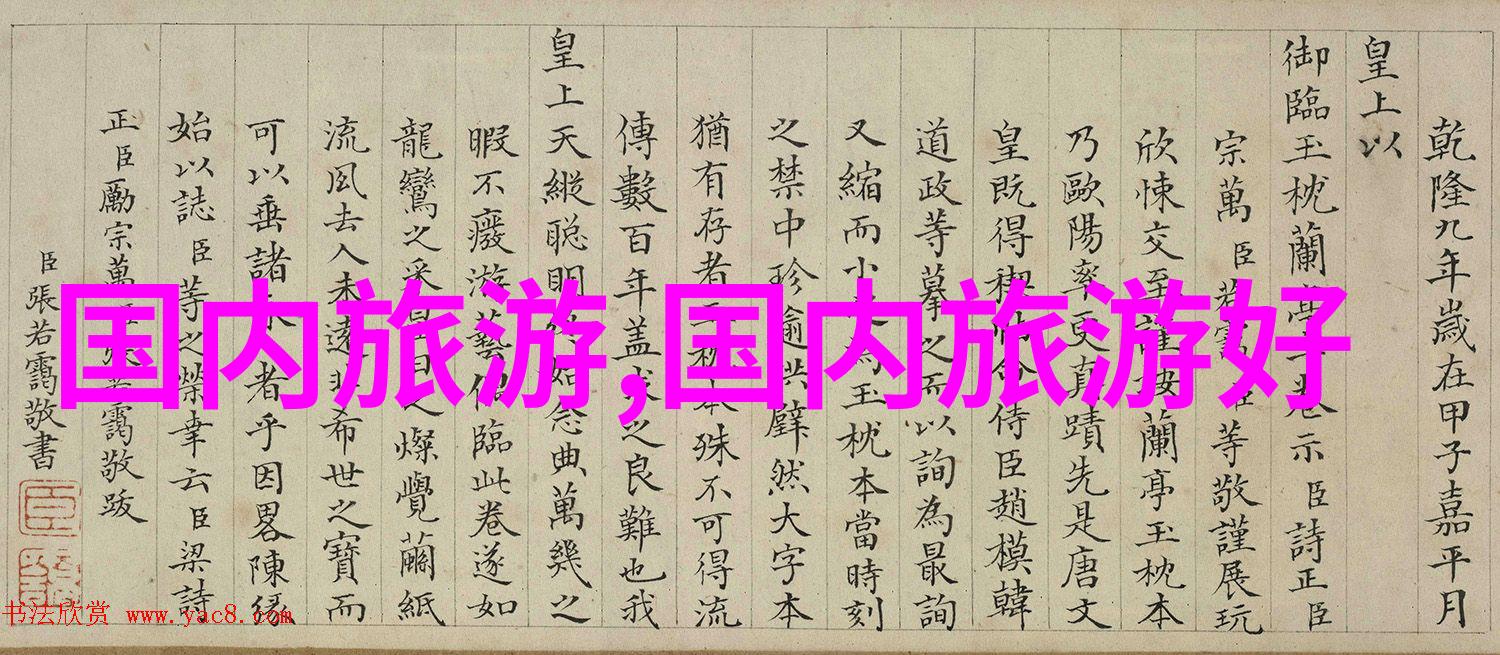 乾隆九年歲在甲子嘉平月
皇上以
御臨玉枕蘭亭一卷示臣詩正臣
宗萬臣若靄臣等敬謹展玩
欣悚交至謹按蘭亭玉枕本
乃歐陽率更真蹟先是唐文
皇既得禊帖命侍臣趙模韓
道政等摹之而以詢為最詢
又縮而小之為玉枕本當時刻
之禁中珍踰拱璧然大字本
猶有存者玉枕本殊不可得流
傳數百年蓋求之良難也我
皇上天縱聰明
念典萬幾之
暇不癈游藝偶臨此卷遂如
龍鸞之采
之燦覺繭紙
流風去人未遠
希世之寶而
可以垂諸永
者乎因畧陳緣
始以誌臣等之榮幸云臣梁詩
正臣勵宗萬臣張若靄敬跋
臣張若靄敬書
国内旅游,国内旅游好
书法欣赏 www.yac8.com